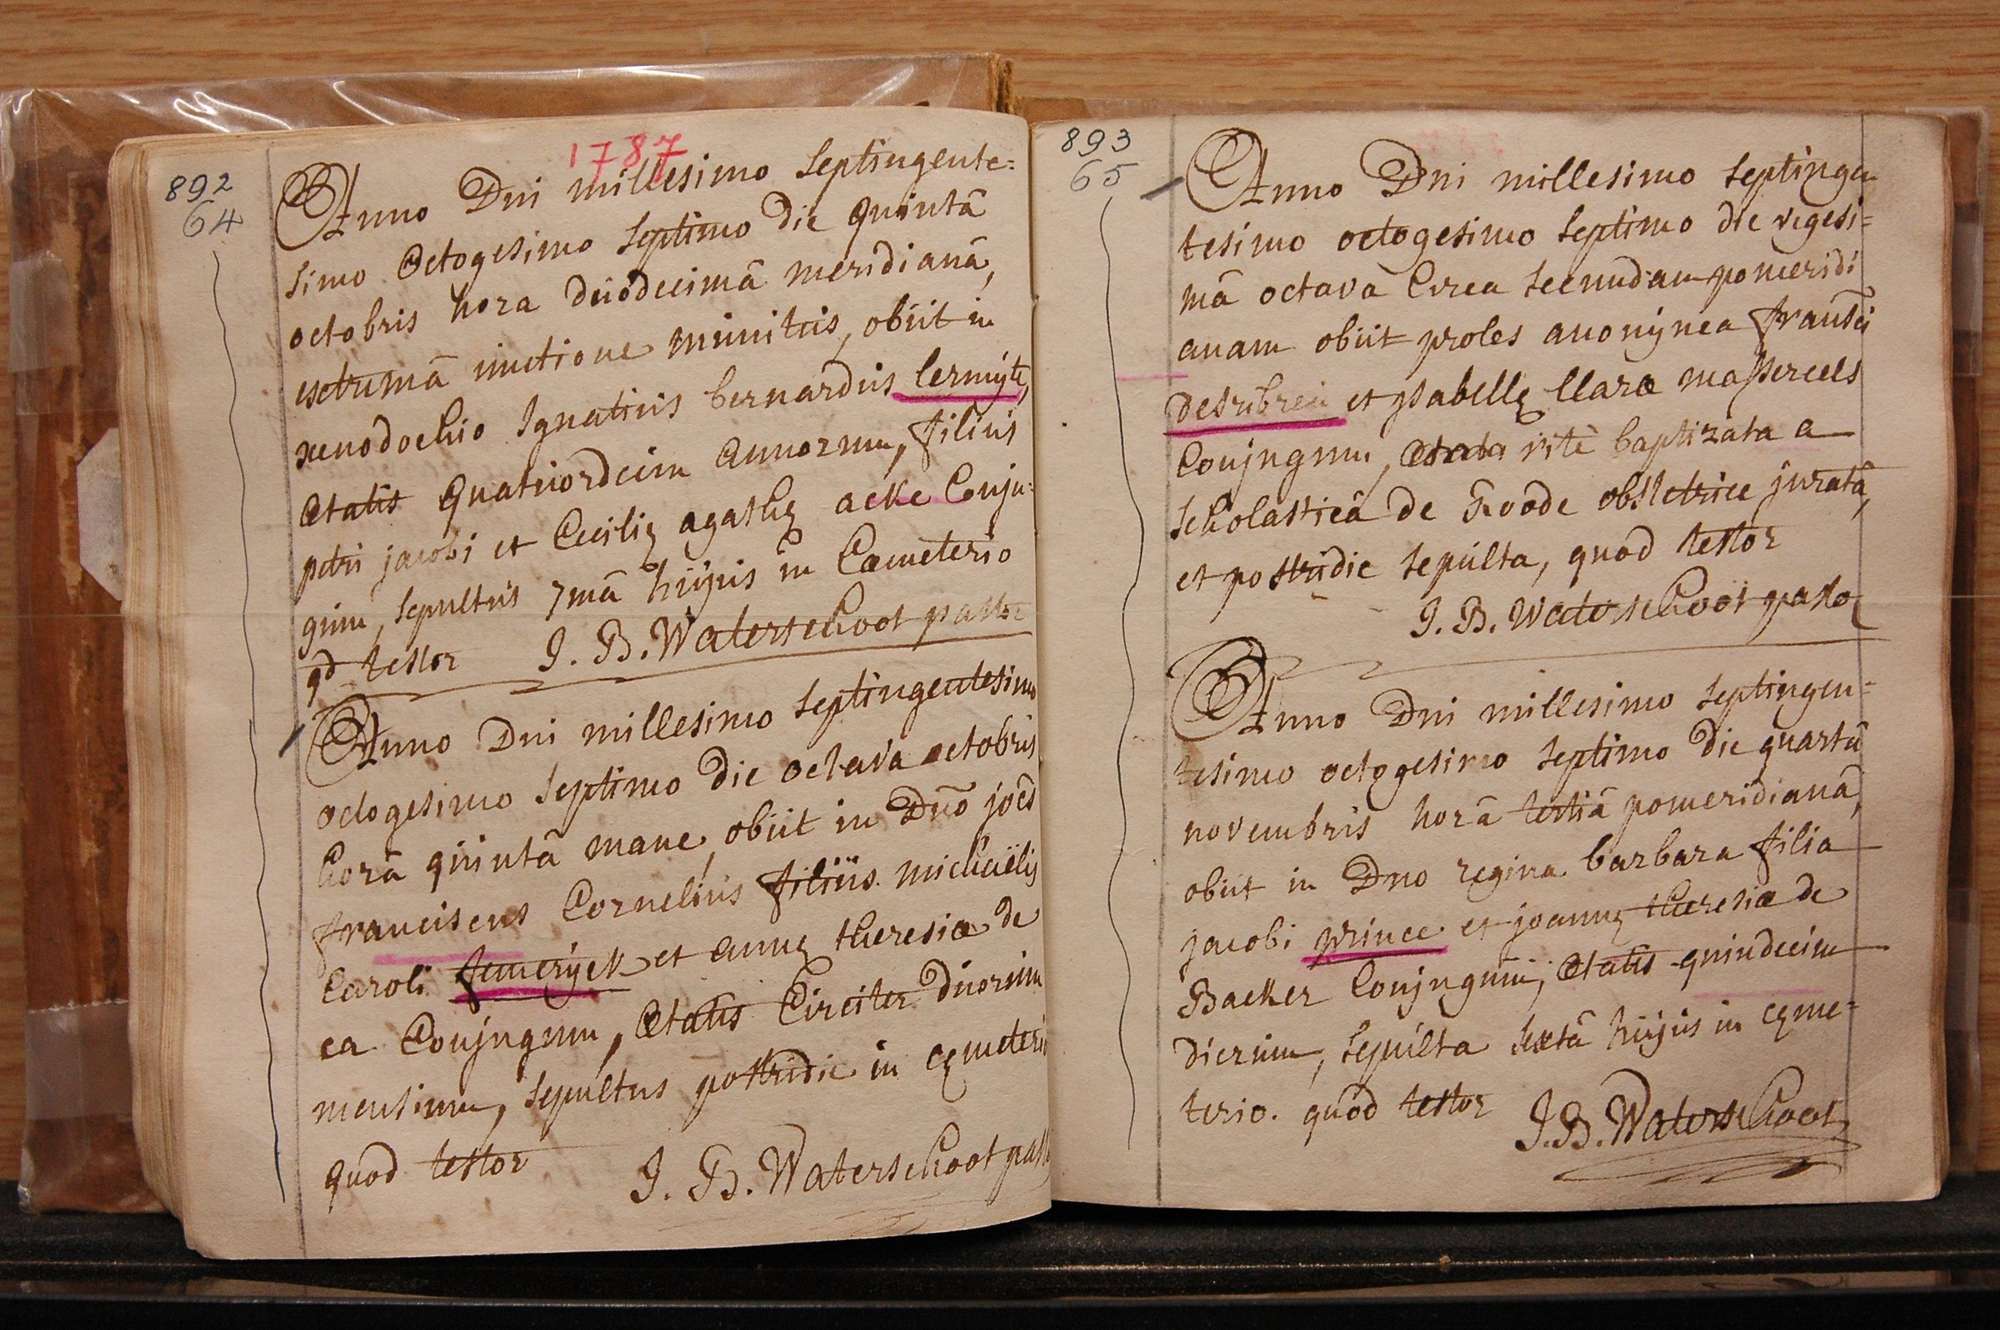 1787
892
64
Anno Dni millesimo septingente=
simo octogesimo septimo die quintâ
octobris hora duodecimâ meridianâ,
extremâ unctione munitus, obiit in
xenodochio Ignatius bernardus lermijte,
ætatis quatuordecim annorum, filius
petri jacobi et Cecilię agathę acke Conju=
gum, sepultus 7mâ hujus in Cæmeterio
qd testor J. B. Waterschoot pastor
Anno Dni millesimo septingentesimo
octogesimo septimo die octava octobris
horâ quintâ mane, obiit in Dño joēs
franciscus Cornelius filius michaëlis
Caroli femerÿck et annę theresiæ de
ca Conjugum, ætatis Circiter duorum
mensium, sepultus postridie in cęmeterio
quod testor J. B. Waterschoot past
893
65
Anno Dni millesimo septingen
tesimo octogesimo septimo die vigesi=
mâ octavâ Circa secundam pomeridi
anam obiit proles anonÿnea francisci
et ysabellę Claræ massereels
Conjugum, ritè baptizata a
scholasticâ de Roode obstetrice juratâ,
et postridie sepulta, quod testor
J. B. Waterschoot pastor
Anno Dni millesimo septingen=
tesimo octogesimo septimo die quartâ
novembris horâ tertiâ pomeridianâ,
obiit in Dno regina barbara filia
jacobi prince et joannę theresiæ de
Backer Conjugum, ætatis quindecim
dierum, sepulta sextâ hujus in cęme=
terio. quod testor J. B. Waterschoot